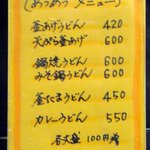 (あつあつ メニュー)
釜あげうどん 420
天ぷら釜あげ 600
鍋焼うどん 600
みそ鍋うどん 600
釜たまうどん 450
カレーうどん 550
各大盛 100円増